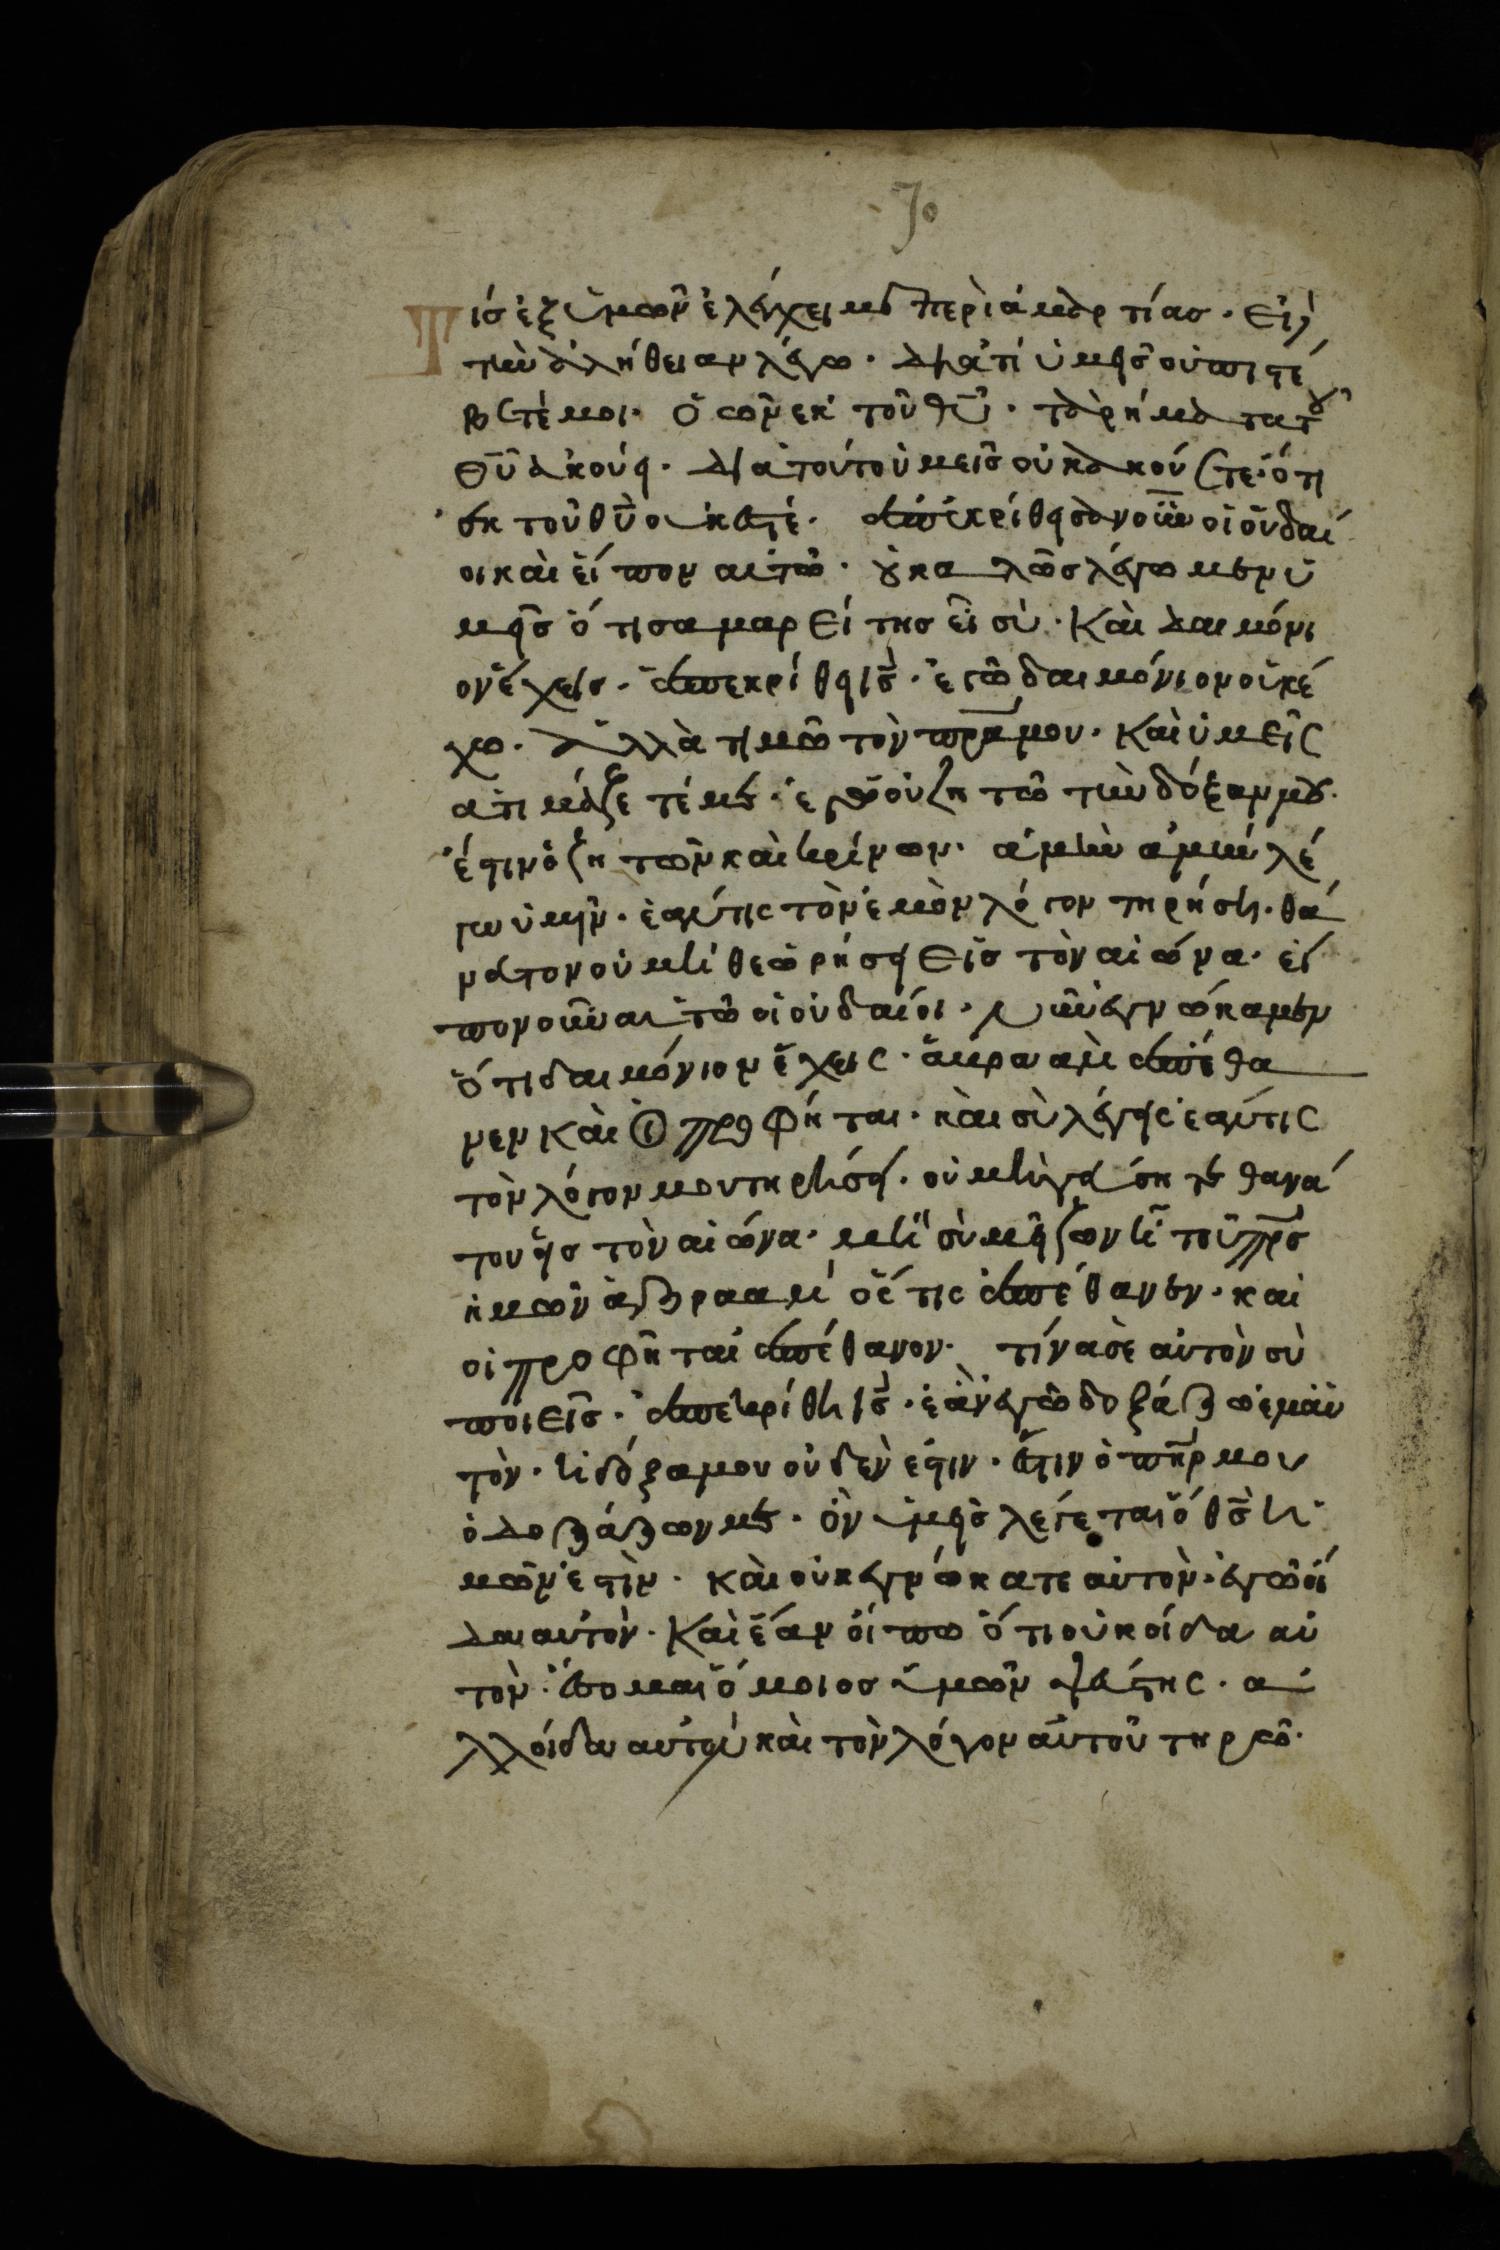 70
Τίσ ἐξ ὑμῶν ἐλέγχει με περὶ ἁμαρτίασ· εἰ
τὴν ἀλήθειαν λέγω· διατί ὑμεῖσ οὐ πιστέ
βετέ μοι· ὁ ὢν ἐκ τοῦ θῦ· τὰ ρήματα τοῦ
θῦ ἀκούει· διατοῦτο ὑμεῖσ οὐκ ἀκούετε· ὅτι
ἐκ τοῦ θῦ οὐκ ἐστέ· ἀπεκρίθησαν οὖν οἱ ἰουδαῖ
οι καὶ εἶπον αὐτῶ· οὐ καλῶσ λέγωμεν ὑ
μεῖσ ὅτι σαμαρείτησ εἶ σύ· καὶ δαιμόνι
ον ἔχεισ· ἀπεκρίθη ισ· ἐγὼ δαιμόνιον οὐκ έ
χω· ἀλλὰ τιμῶ τὸν πρα μου· καὶ ὑμεῖς
ἀτιμάζετέ με· ἐγὼ οὐ ζητῶ τὴν δόξαν μου·
ἔστιν ὁ ζητῶν καὶ κρίνων· ἀμὴν ἀμὴν λέ
γω ὑμῖν· ἐάν τις τὸν ἐμὸν λόγον τηρήση· θά
νατον οὐ μὴ θεωρήσει εἰσ τὸν αἰῶνα· εἶ
πον οὖν αὐτῶ οἱ ἰουδαῖοι· νῦν ἐγνώκαμεν
ὅτι δαιμόνιον ἔχεις· ἀβραὰμ ἀπέθα
νεν καὶ οἱ προφήται· καὶ σὺ λέγεις ἐάν τις
τὸν λόγον μου τηρήσει· οὐ μὴ γεύσηται θανά
του εἰσ τὸν αἰῶνα· μὴ σὺ μείζων εἶ τοῦ πρσ
ἡμῶν ἀβρααμ ὅστις ἀπέθανεν· καὶ
οἱ προφῆται ἀπέθανον· τίνα σὲ αὐτὸν σὺ
ποιεῖσ· ἀπεκρίθη ισ· ἐὰν ἐγὼ δοξάζω ἐμαυ
τὸν· ἡ δόξα μου οὐδὲν ἐστιν· ἔστιν ὁ πηρ μου
ὁ δοξάζων με· ὃν ὑμεῖσ λέγεται ὁ θσ ἡ
μῶν ἐστὶν· καὶ οὐκ ἐγνώκατε αὐτον· ἐγὼ οἶ
δα αὐτὸν· καὶ ἐὰν εἴπω ὅτι οὐκ οἶδα αὐ
τὸν· ἔσομαι ὅμοιοσ ὑμῶν ψεύστης· ἀ
λλ οἶδα αὐτὸν καὶ τὸν λόγον αὐτοῦ τηρῶ·